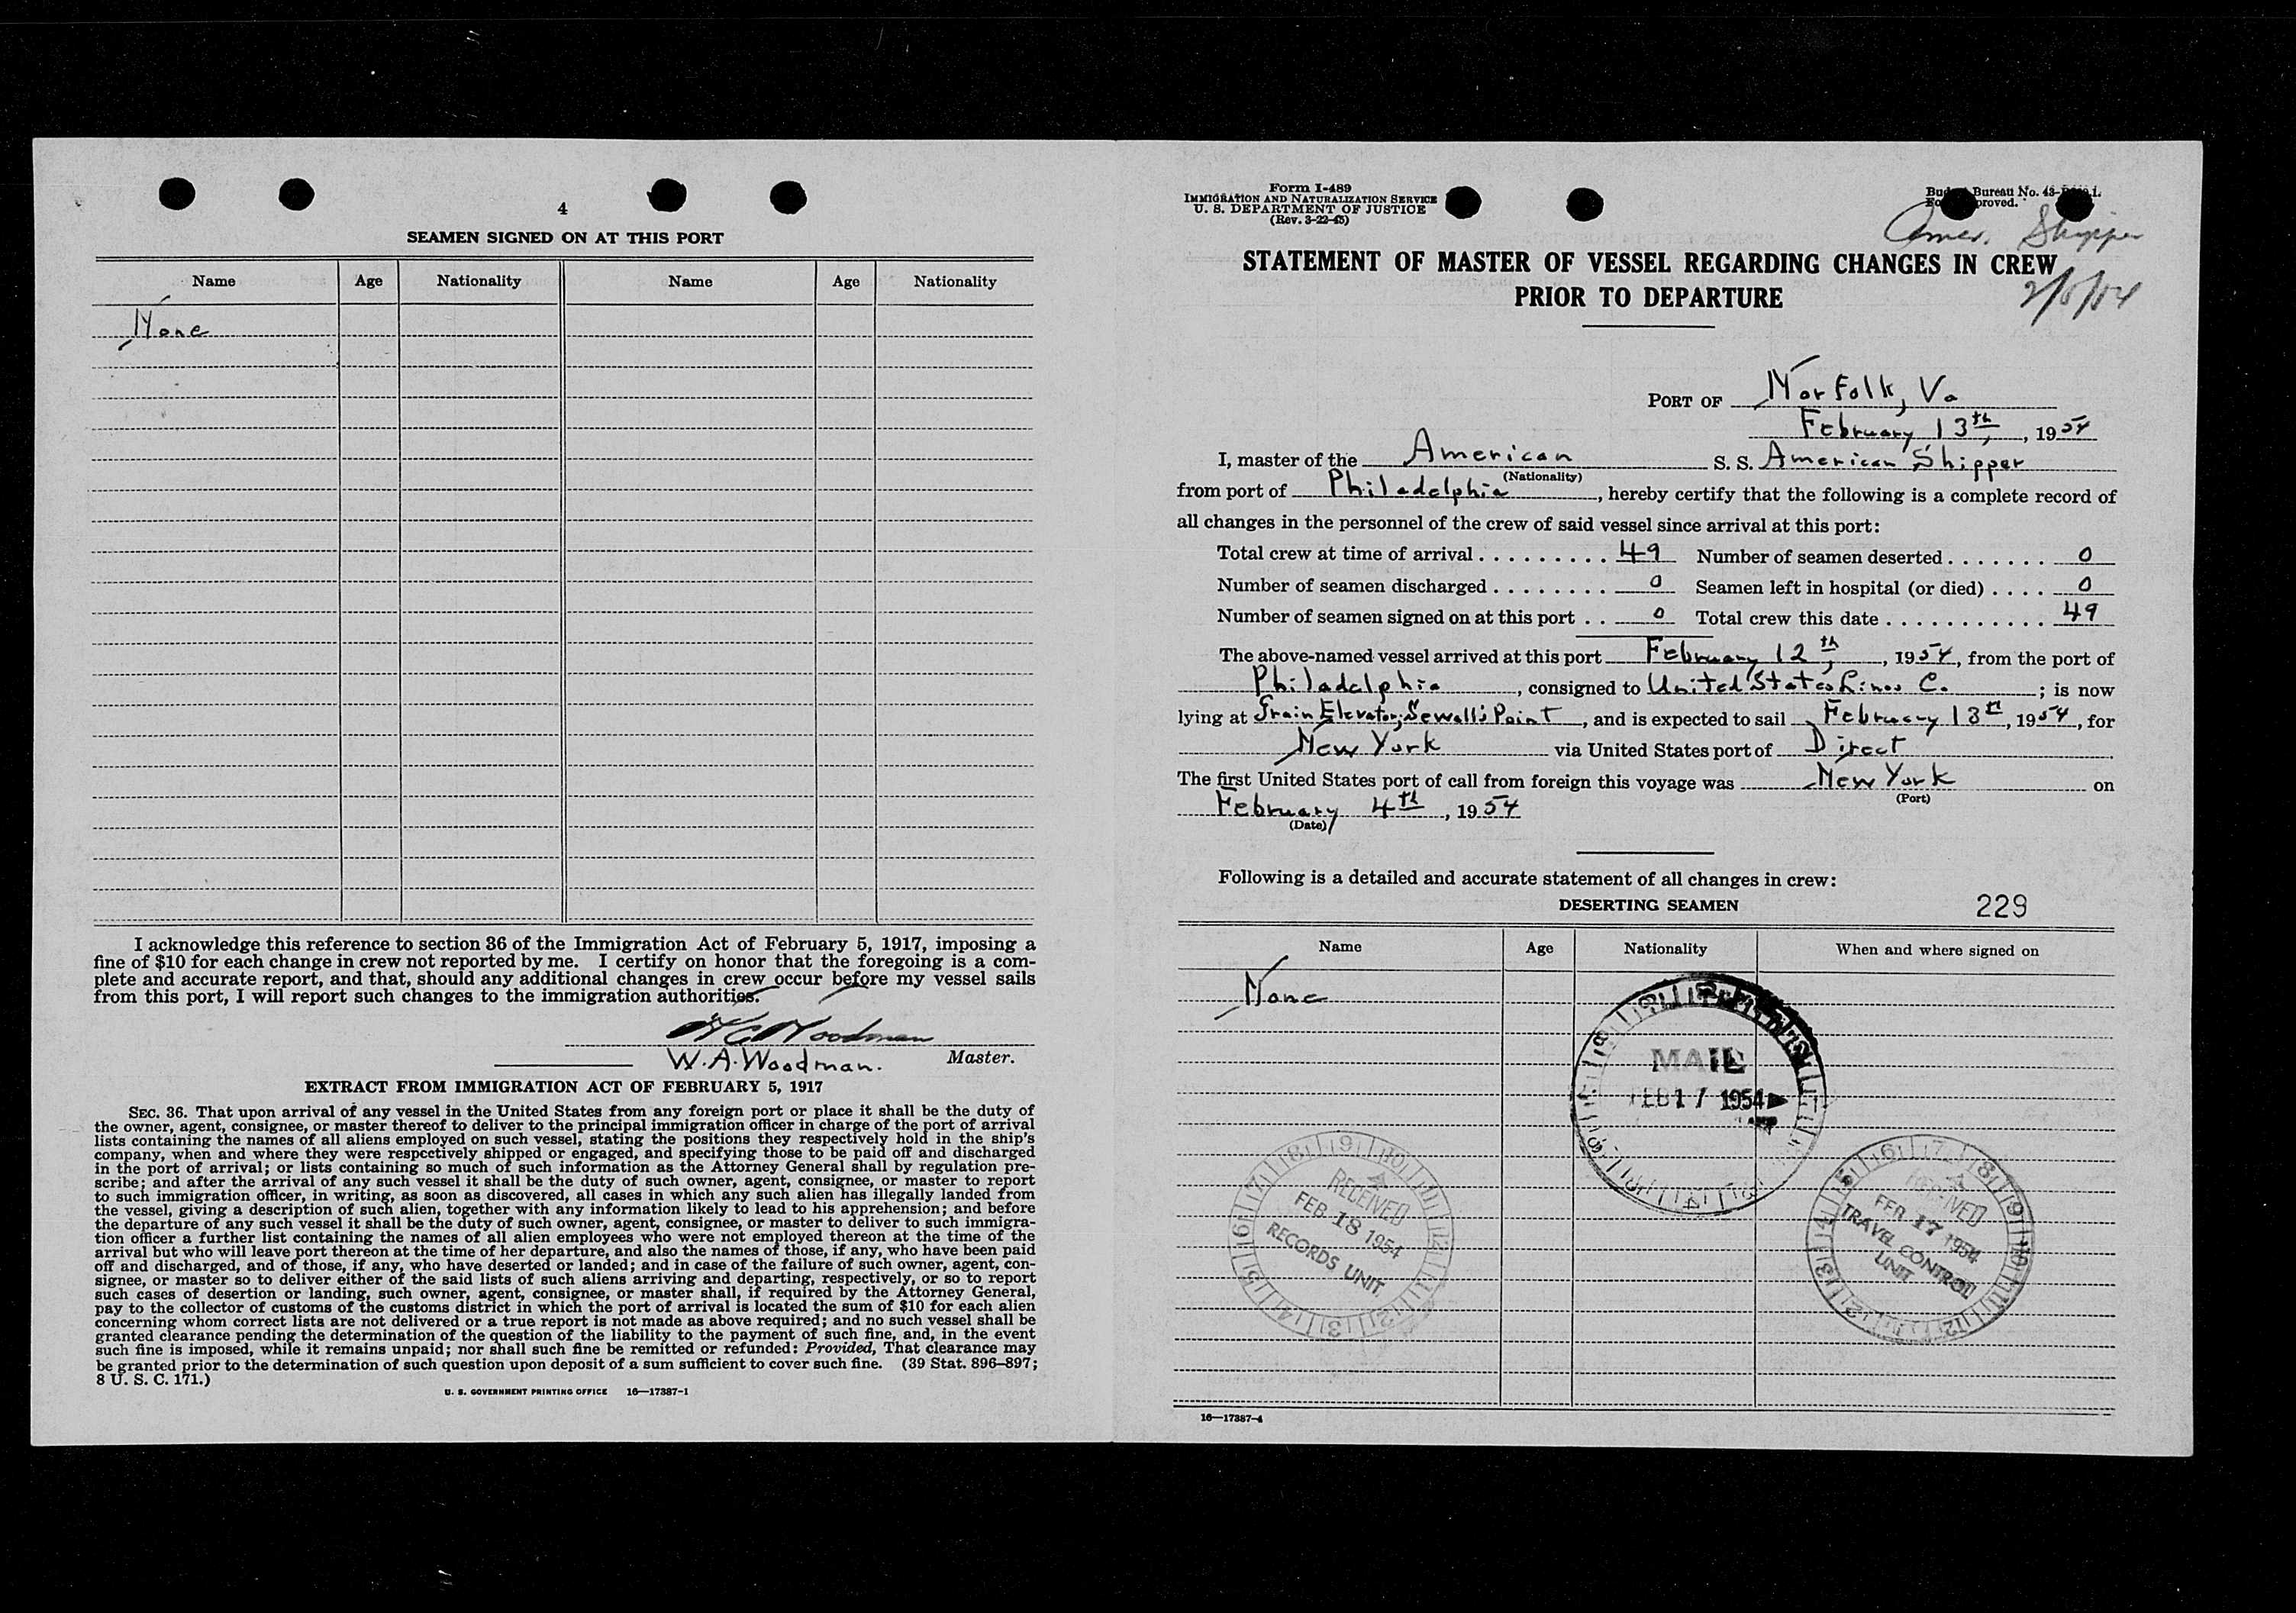 4
SEAMEN SIGNED ON AT THIS PORT
Name Age Nationality Name Age Nationality
None
I acknowledge this reference to section 36 of the Immigration Act of February 5, 1917, imposing a
fine of $10 for each change in crew not reported by me. I certify on honor that the foregoing is a com-
plete and accurate report, and that, should any additional changes in crew occur before my vessel sails
from this port, I will report such changes to the immigration authorities.
W.A. Woodman
W.A. Woodman. Master.
EXTRACT FROM IMMIGRATION ACT OF FEBRUARY 5, 1917
SEC. 36. That upon arrival of any vessel in the United States from any foreign port or place it shall be the duty of
the owner, agent, consignee, or master thereof to deliver to the principal immigration officer in charge of the port of arrival
lists containing the names of all aliens employed on such vessel, stating the positions they respectively hold in the ship's
company, when and where they were respectively shipped or engaged, and specifying those to be paid off and discharged
in the port of arrival; or lists containing so much of such information as the Attorney General shall by regulation pre-
scribe; and after the arrival of any such vessel it shall be the duty of such owner, agent, consignee, or master to report
to such immigration officer, in writing, as soon as discovered, all cases in which any such alien has illegally landed from
the vessel, giving a description of such alien, together with any information likely to lead to his apprehension; and before
the departure of any such vessel it shall be the duty of such owner, agent, consignee, or master to deliver to such immigra-
tion officer a further list containing the names of all alien employees who were not employed thereon at the time of the
arrival but who will leave port thereon at the time of her departure, and also the names of those, if any, who have been paid
off and discharged, and of those, if any, who have deserted or landed; and in case of the failure of such owner, agent, con-
signee, or master so to deliver either of the said lists of such aliens arriving and departing, respectively, or so to report
such cases of desertion or landing, such owner, agent, consignee, or master shall, if required by the Attorney General,
pay to the collector of customs of the customs district in which the port of arrival is located the sum of $10 for each alien
concerning whom correct lists are not delivered or a true report is not made as above required; and no such vessel shall be
granted clearance pending the determination of the question of the liability to the payment of such fine, and, in the event
such fine is imposed, while it remains unpaid; nor shall such fine be remitted or refunded: Provided, That clearance may
be granted prior to the determination of such question upon deposit of a sum sufficient to cover such fine. (39 Stat. 896–897;
8 U. S. C. 171.)
U. S. GOVERNMENT PRINTING OFFICE 16—17387-1
Form I-489
IMMIGRATION AND NATURALIZATION SERVICE
U. S. DEPARTMENT OF JUSTICE
(Rev. 3-22-45)
Bureau No. 43-
Amer. Shipper
STATEMENT OF MASTER OF VESSEL REGARDING CHANGES IN CREW
PRIOR TO DEPARTURE
PORT OF Norfolk, Va
February 13th, 1954
I, master of the American S. S. American Shipper
(Nationality)
from port of Philadelphia, hereby certify that the following is a complete record of
all changes in the personnel of the crew of said vessel since arrival at this port:
Total crew at time of arrival . . . . . . . . . 49 Number of seamen deserted . . . . . . . 0
Number of seamen discharged . . . . . . . . 0 Seamen left in hospital (or died) . . . . 0
Number of seamen signed on at this port . . 0 Total crew this date . . . . . . . . . . . . 49
The above-named vessel arrived at this port February 12th, 1954, from the port of
Philadelphia, consigned to United States Lines C.; is now
lying at Grain Elevator, Sewall's Point, and is expected to sail February 13th, 1954, for
New York via United States port of Direct
The first United States port of call from foreign this voyage was New York on
(Port)
February 4th, 1954
(Date)
Following is a detailed and accurate statement of all changes in crew:
DESERTING SEAMEN 229
Name Age Nationality When and where signed on
None
MAIL
FEB 17 1954
RECEIVED
FEB 18 1954
RECORDS UNIT
RECEIVED
FEB 17 1954
TRAVEL CONTROL
UNIT
16—17387-4